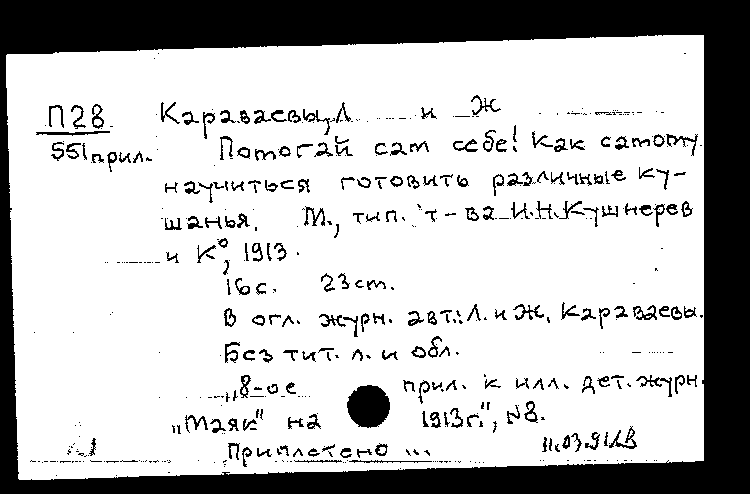 П28 Караваевы, Л и Ж
551прил. Помогай сам себе! Как самому
научиться готовить различные ку-
шанья. М., тип. т-ва И.Н.Кушнерев
и К°, 1913.
16с. 23см.
В огл. журн. авт.: Л. и Ж. Караваевы.
Без тит. л. и обл.
„8-ое прил. к илл. дет. журн.
„Маяк" на 1913г.", №8.
Приплетено ...
11.03.91